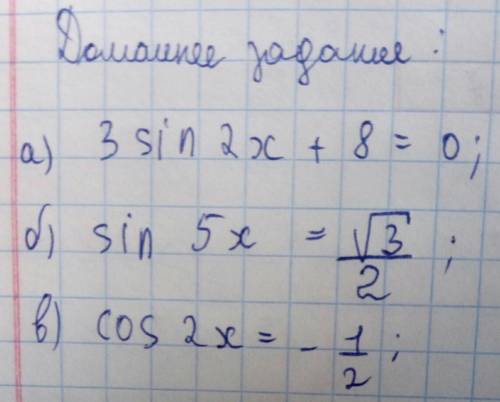 Домашнее задание:
а) 3 sin 2x + 8 = 0;
б) sin 5x = √3/2;
в) cos 2x = - 1/2;